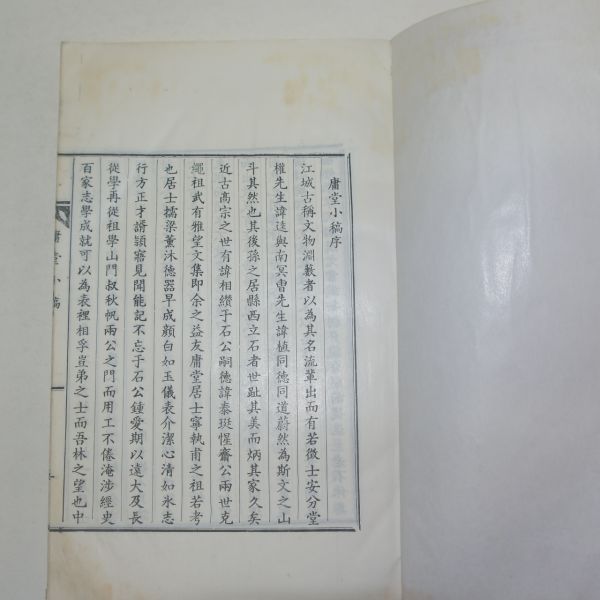 庸堂小稿序
江城古稱文物淵藪者以為其名流輩出而有若徵士安分堂
權先生諱逵與南冥曺先生諱植同德同道蔚然為斯文之山
斗其然也其後孫之居縣西立石者世趾其美而炳其家久矣
近古高宗之世有諱相纘于石公嗣德諱泰珽惺齋公兩世克
繩祖武有雅望文集即余之益友庸堂居士寧執甫之祖若考
也居士擩梁薰沐德器早成顏白如玉儀表介潔心清如氷志
行方正才諝頴窹見聞能記不忘于石公鍾愛期以遠大及長
從學再從祖學山門叔秋帆兩公之門而用工不倦淹涉經史
百家志學成就可以為表裡相孚豈弟之士而吾林之望也中
庸堂小稿